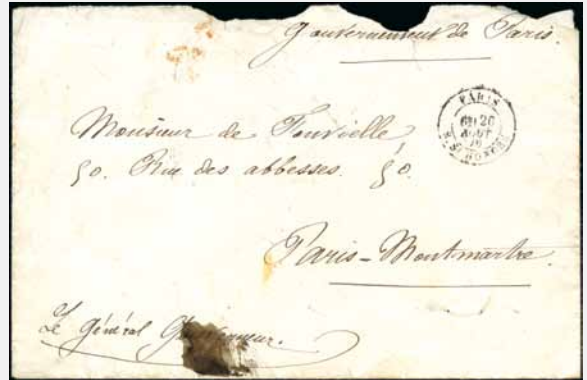 Gouvernement de Paris.
PARIS
26
AOUT
70
Monsieur de Fonvielle,
50. Rue des abbesses. 50.
Paris-Montmartre.
Le Général